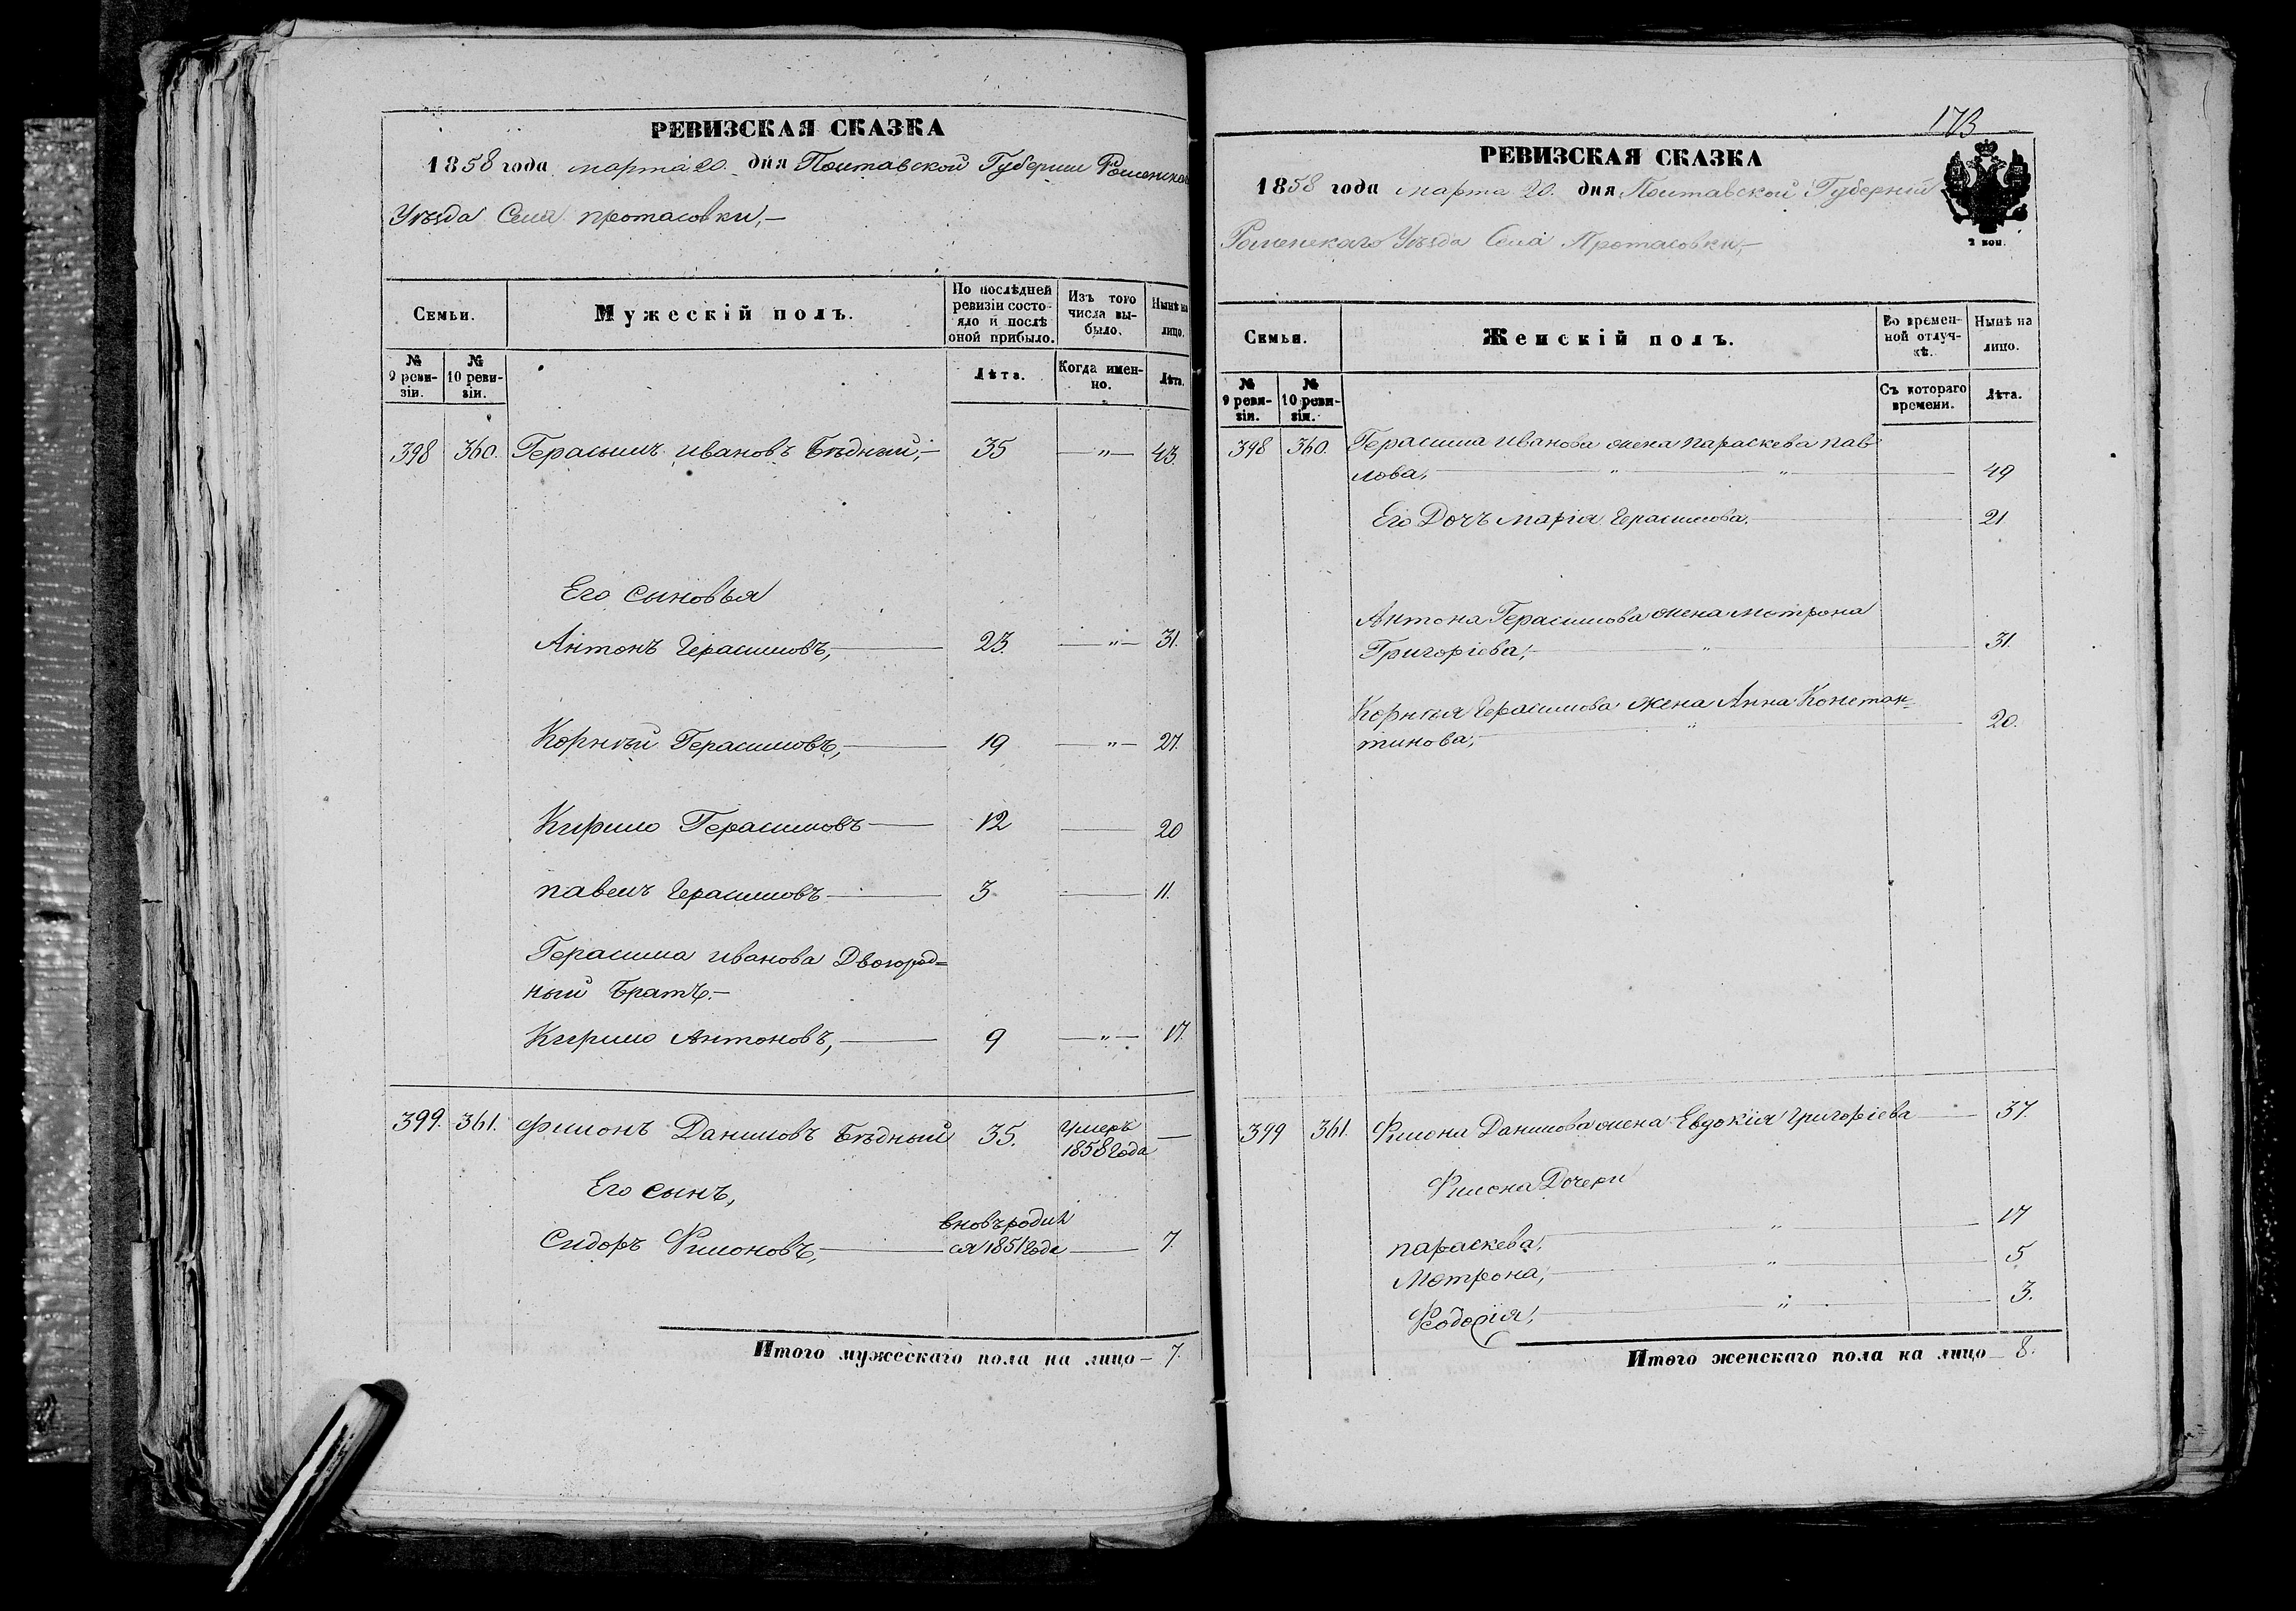 РЕВИЗСКАЯ СКАЗКА
1858 года марта 20. дня Полтавской Губернии Роменскаго
Уѣзда Села протасовки,—
Семьи.
Мужескій полъ.
По послѣдней ревизіи состояло и послѣ оной прибыло.
Изъ того числа выбыло.
Нынѣ на лицо.
№ 9 ревизіи.
№ 10 ревизіи.
Лѣта.
Когда именно.
Лѣта.
398 360. Герасимъ Ивановъ Бѣдный,— 35 —"— 43.
Его сыновья
Антонъ Герасимовъ,— 23. —"— 31.
Корнѣй Герасимовъ,— 19 —"— 27.
Кирило Герасимовъ— 12 — 20
павелъ Герасимовъ— 3 — 11.
Герасима Иванова Двоюрод=
ный Братъ.—
Кирило Антоновъ,— 9 —"— 17.
399. 361. Филонъ Даниловъ Бѣдный 35. умеръ —
1858 года
Его сынъ,
вновь родил
Сидоръ Филоновъ,— ся 1851 года — 7.
Итого мужескаго пола на лицо — 7.
173
РЕВИЗСКАЯ СКАЗКА
1858 года марта 20. дня Полтавской Губерніи
Роменскаго Уѣзда Села Протасовки,—
2 коп.
Семья.
Женскій полъ.
Во временной отлучкѣ.
Нынѣ на лицо.
№ 9 ревизіи.
№ 10 ревизіи.
Съ котораго времени.
Лѣта.
398 360. Герасима Иванова жена параскева пав
лова,— " " — 49
Его Дочь марія Герасимова.— 21
Антона Герасимова жена мотрона
Григоріева,— " — 31.
Корнѣя Герасимова жена Анна Констан=
тинова,— " — 20.
399 361. Филона Данилова жена Евдокія Григоріева — 37.
Филона Дочери
параскева,— " — 17
Мотрона,— " — 5
Феодосія,— " — 3.
Итого женскаго пола на лицо — 8.